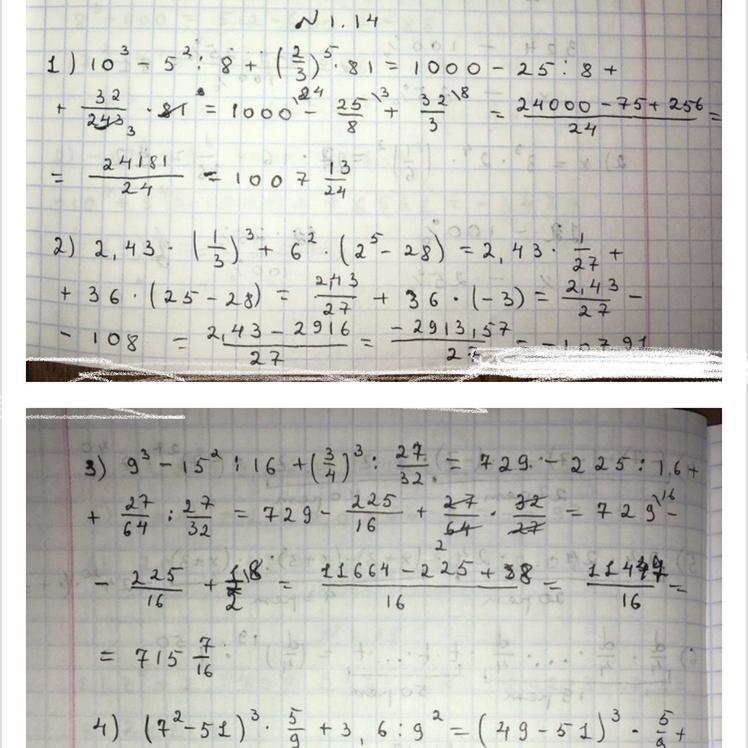 N 1.14
1) 10³ - 5² : 8 + (2/3)⁵ · 81 = 1000 - 25 : 8 +
+ 32/243 3 · 81 = 1000\24 - 25/8\3 + 32/3\8 = 24000 - 75 + 256/24 =
= 24181/24 = 1007 13/24
2) 2,43 · (1/3)³ + 6² · (2⁵ - 28) = 2,43 · 1/27 +
+ 36 · (25 - 28) = 2,43/27 + 36 · (-3) = 2,43/27 -
- 108 = 2,43 - 2916/27 = -2913,57/27 = -107,91
3) 9³ - 15² : 16 + (3/4)³ : 27/32 = 729 - 225 : 16 +
+ 27/64 : 27/32 = 729 - 225/16 + 27/64 2 · 32/27 = 729\16 -
- 225/16 + 1/2\8 = 11664 - 225 + 8/16 = 11447/16 =
= 715 7/16
4) (7² - 51)³ · 5/9 + 3,6 : 9² = (49 - 51)³ · 5/9 +